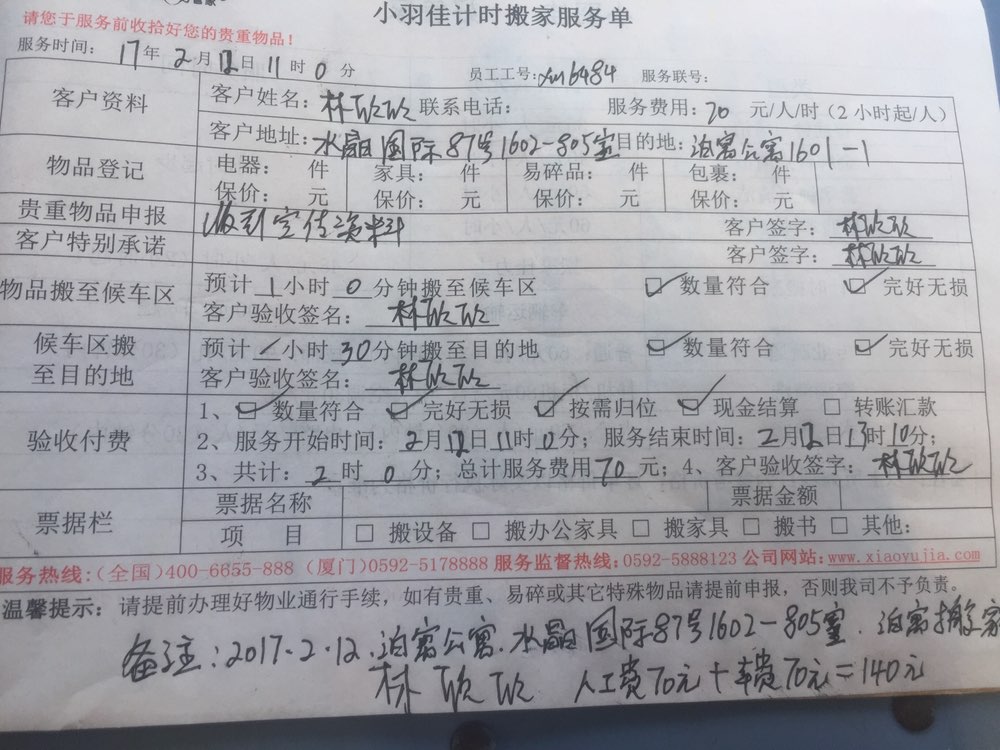 小羽佳计时搬家服务单
请您于服务前收拾好您的贵重物品！
服务时间： 17年2月12日11时0分 员工工号：xm6484 服务联号：
客户资料 客户姓名：林欣欣 联系电话： 服务费用：70 元/人/时（2小时起/人）
客户地址：水晶国际87号1602-805室 目的地：泊寓公寓1601-1
物品登记 电器： 件 家具： 件 易碎品： 件 包裹： 件
保价： 元 保价： 元 保价： 元 保价： 元
贵重物品申报 收到宣传资料 客户签字：林欣欣
客户特别承诺 客户签字：林欣欣
物品搬至候车区 预计1小时0分钟搬至候车区 ☑ 数量符合 ☑ 完好无损
客户验收签名：林欣欣
候车区搬至目的地 预计/小时30分钟搬至目的地 ☑ 数量符合 ☑ 完好无损
客户验收签名：林欣欣
验收付费 1、☑ 数量符合 ☑ 完好无损 ☑ 按需归位 ☑ 现金结算 □ 转账汇款
2、服务开始时间：2月12日11时0分；服务结束时间：2月12日13时10分；
3、共计：2时0分；总计服务费用70元；4、客户验收签字：林欣欣
票据栏 票据名称 票据金额
项 目 □ 搬设备 □ 搬办公家具 □ 搬家具 □ 搬书 □ 其他：
服务热线：（全国）400-6655-888（厦门）0592-5178888 服务监督热线：0592-5888123 公司网站：www.xiaoyujia.com
温馨提示：请提前办理好物业通行手续，如有贵重、易碎或其它特殊物品请提前申报，否则我司不予负责。
备注：2017.2.12.泊寓公寓.水晶国际87号1602-805室.泊寓搬家
林欣欣 人工费70元+车费70元=140元